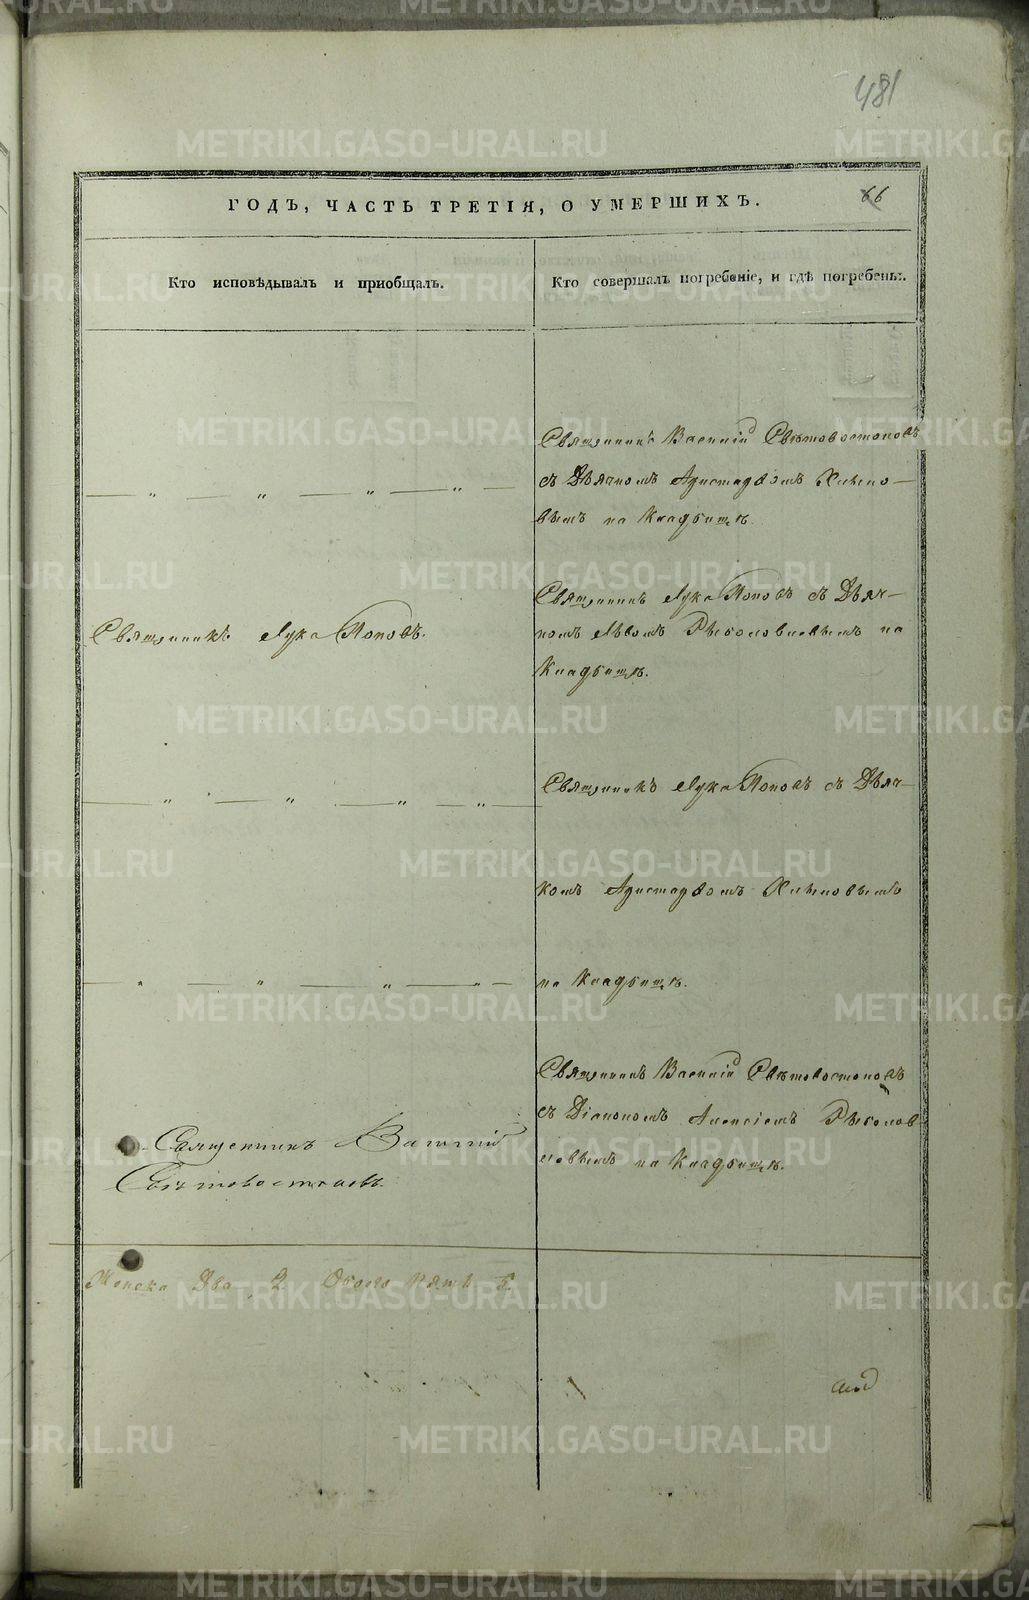 481
ГОДЪ, ЧАСТЬ ТРЕТІЯ, О УМЕРШИХЪ.
66
Кто исповѣдывалъ и пріобщалъ.
Кто совершалъ погребеніе, и гдѣ погребены.
Священникъ Василій Свѣтовостоковъ
съ Дьячкомъ Аристархомъ Хлыно-
вымъ на Кладбищѣ.
Священникъ Лука Поповъ.
Священникъ Лука Поповъ съ Дьяч-
комъ Львомъ на
Кладбищѣ.
Священникъ Лука Поповъ съ Дьяч-
комъ Аристархомъ Хлыновымъ
на Кладбищѣ.
Священникъ Василій
Свѣтовостоковъ.
Священникъ Василій Свѣтовостоковъ
съ Діакономъ Алексіемъ
на Кладбищѣ.
Женска Два 2. Обоего Пять 5.
METRIKI.GASO-URAL.RU